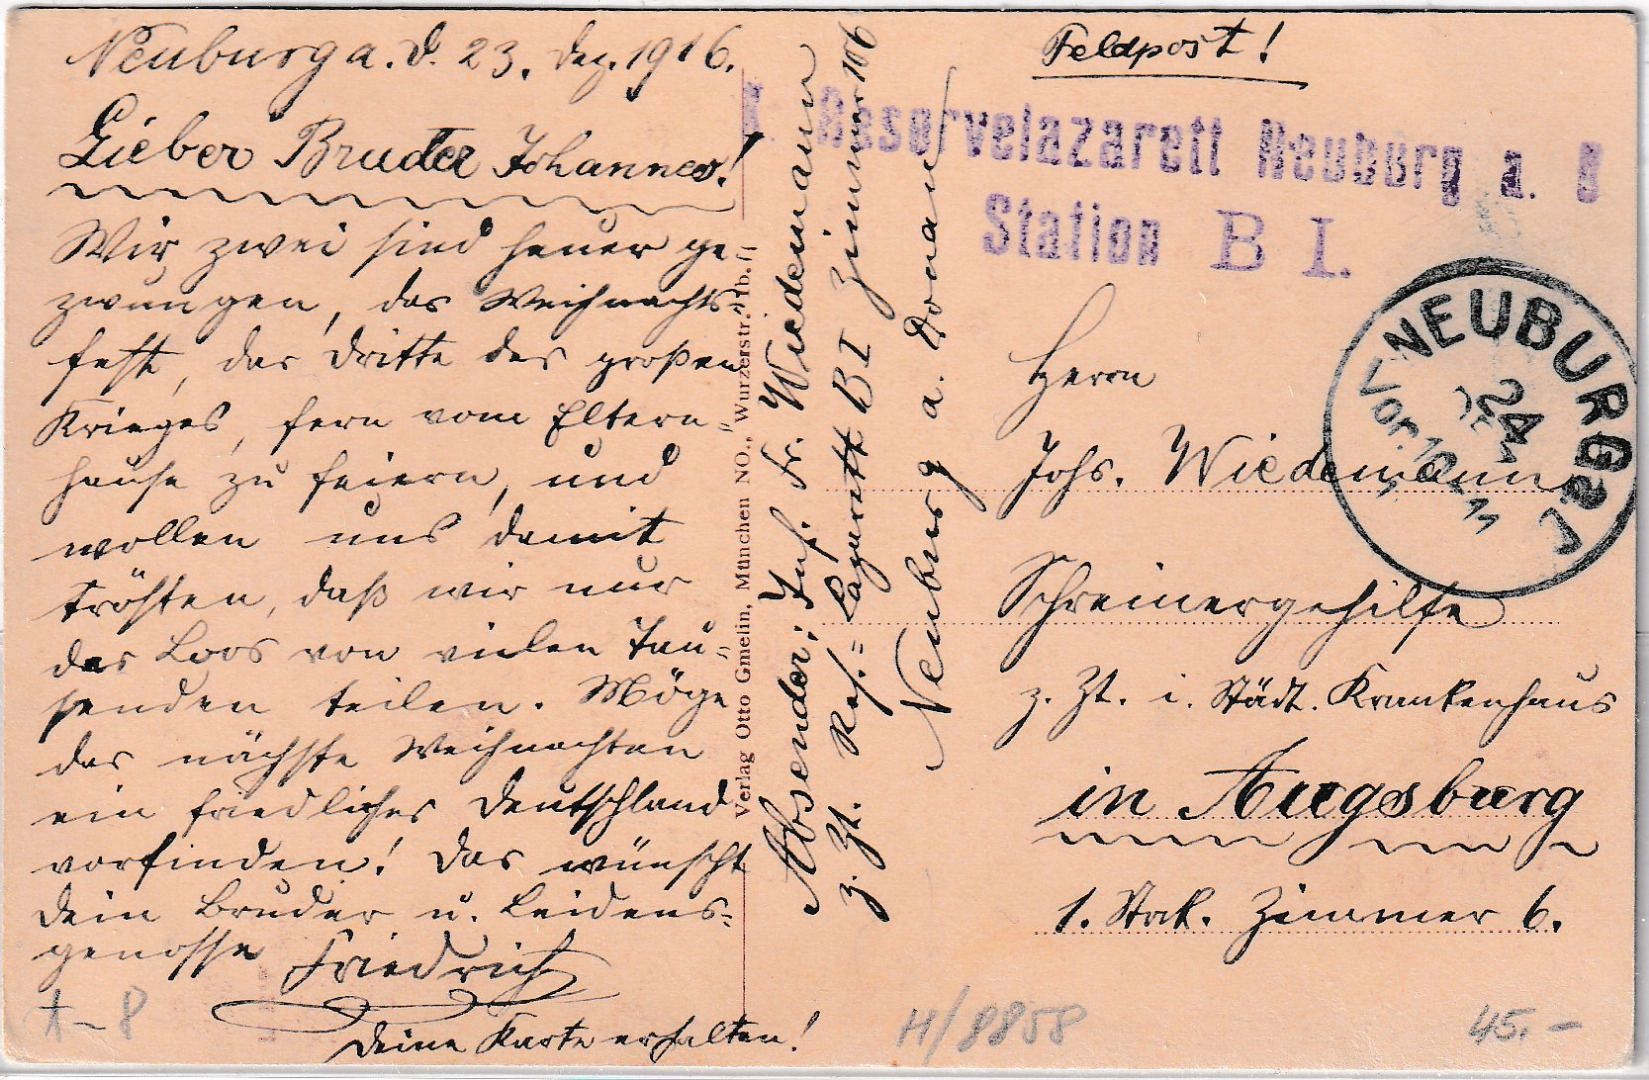 Neuburg a. d. 23. Dez. 1916.
Lieber Bruder Johannes!
Wir zwei sind heuer ge=
zwungen, das Weihnachts=
fest, das dritte des großen
Krieges, fern vom Eltern=
hause zu feiern, und
wollen uns damit
trösten, daß wir nur
das Loos von vielen Tau=
senden teilen. Möge
das nächste Weihnachten
ein friedliches Deutschland
vorfinden! Das wünscht
Dein Bruder u. Leidens=
genosse Friedrich
Deine Karte erhalten!
Verlag Otto Gmelin, München NO., Wurzerstr. 1b.
Absender: Inf. Fr. Wiedemann
z. Zt. Res.= Lazarett B I Zimmer 106
Neuburg a. Donau
Feldpost!
Reservelazarett Neuburg a. D
Station B I.
NEUBURG a. D.
24
Vor. 10-11
Herrn
Johs. Wiedemann
Schreinergehilfe
z. Zt. i. Städt. Krankenhaus
in Augsburg
1. Stock. Zimmer 6.
H/8858
45.-